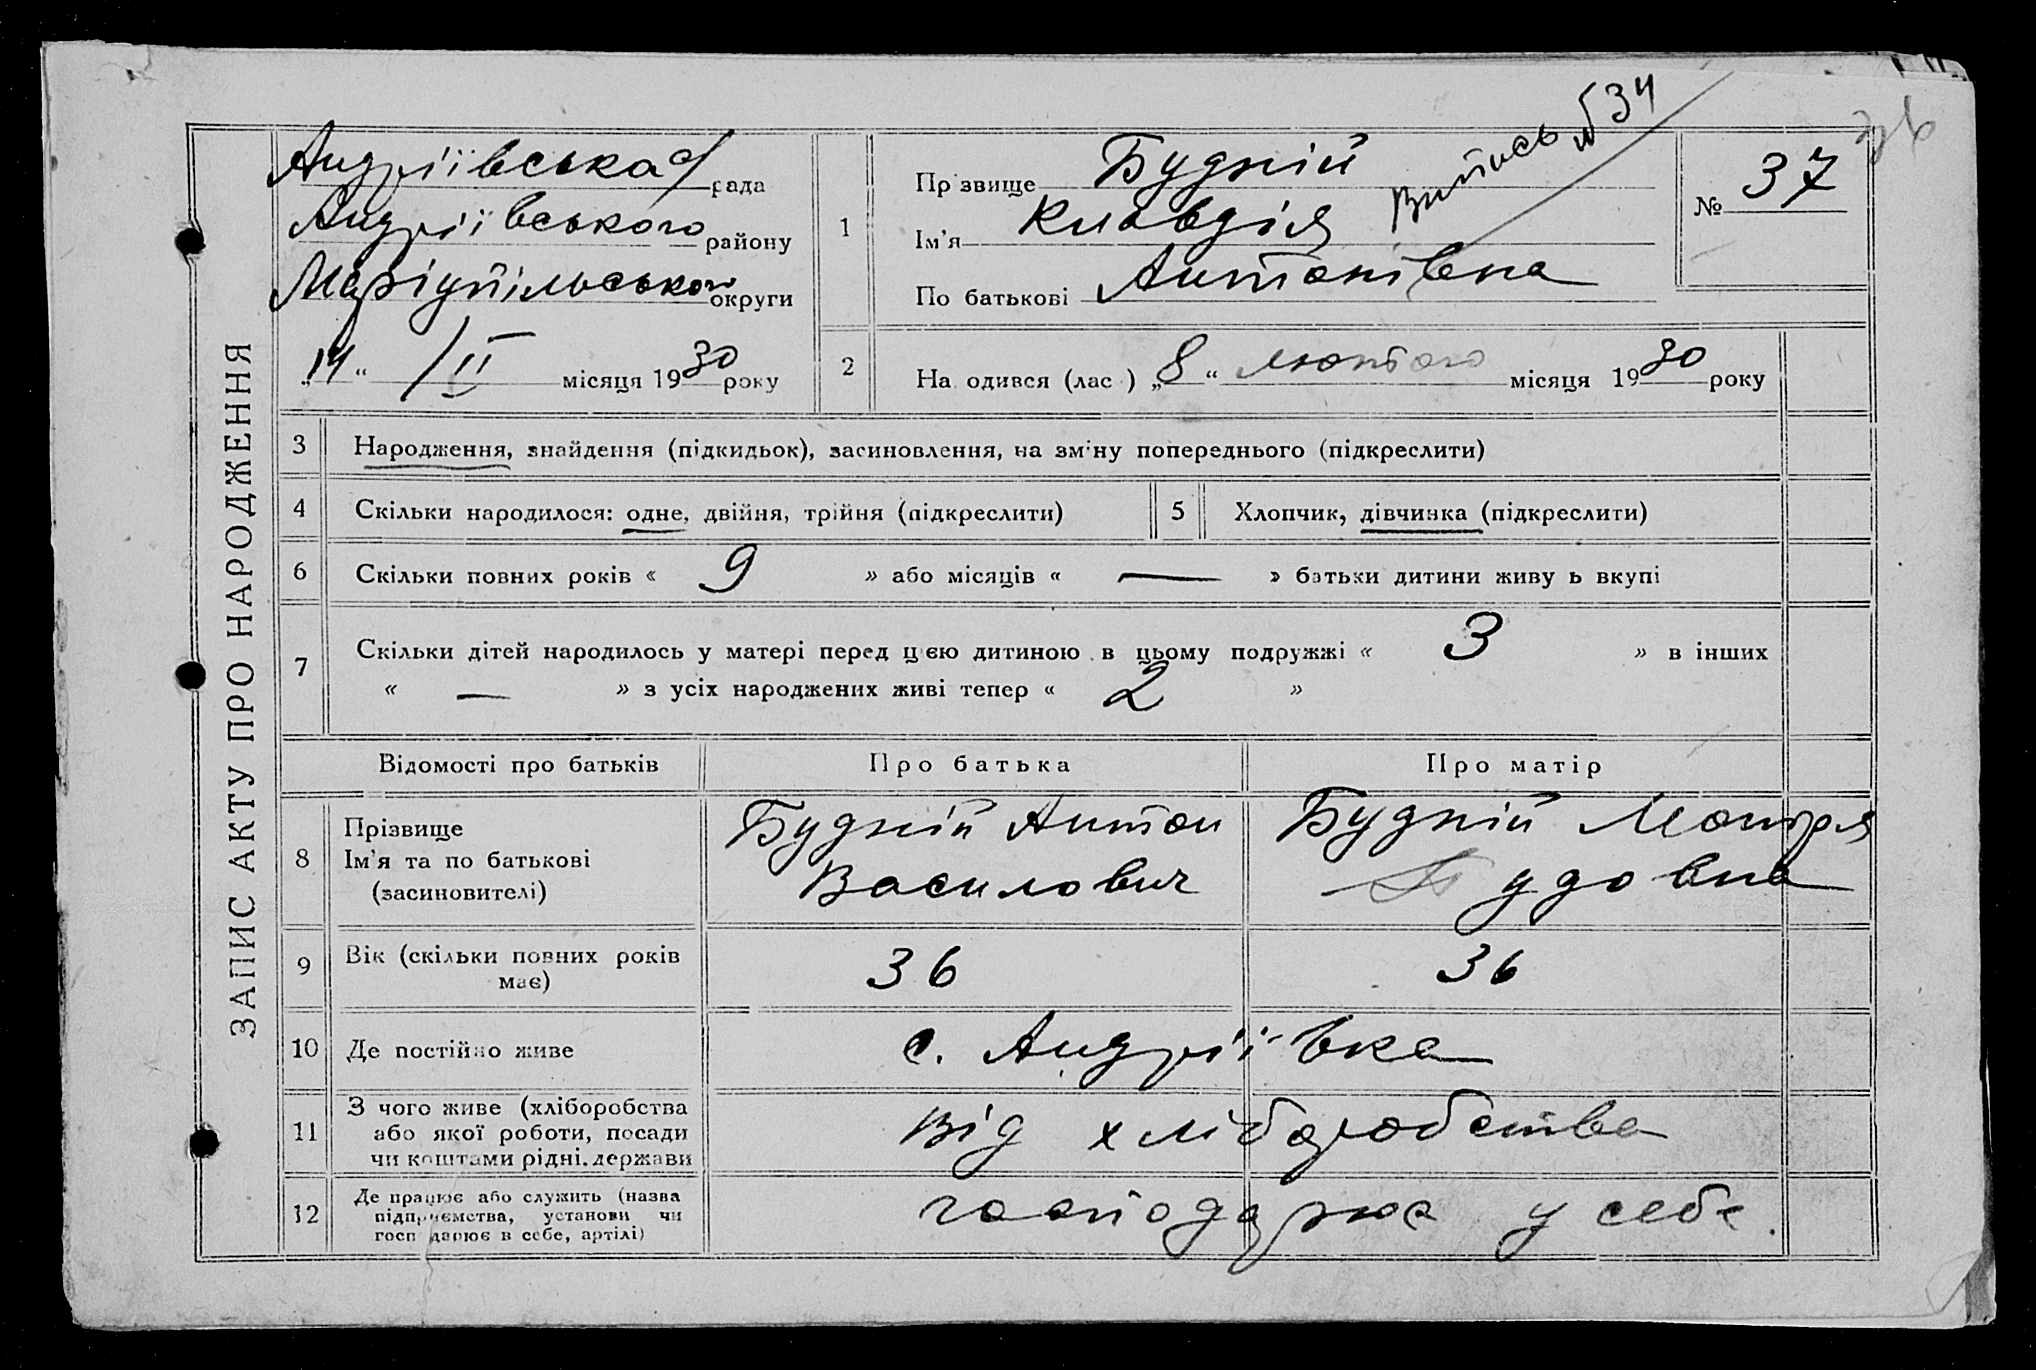 ЗАПИС АКТУ ПРО НАРОДЖЕННЯ
Андріївська рада
Андріївського району
Маріупільського округи
„14“ /II місяця 1930 року
1
Прізвище Будній
Ім'я Клавдія
По батькові Антонівна
Випись №34
№ 37
2
На одився (лас ) „8“ лютого місяця 1930 року
3 Народження, знайдення (підкидьок), засиновлення, на зміну попереднього (підкреслити)
4 Скільки народилося: одне, двійня, трійня (підкреслити)
5 Хлопчик, дівчинка (підкреслити)
6 Скільки повних років « 9 » або місяців « — » батьки дитини живу ь вкупі
7 Скільки дітей народилось у матері перед цією дитиною в цьому подружжі « 3 » в інших
« — » з усіх народжених живі тепер « 2 »
Відомості про батьків Про батька Про матір
8 Прізвище
Ім'я та по батькові
(засиновителі)
Будній Антон
Василович
Будній Мотря
9 Вік (скільки повних років
має)
36 36
10 Де постійно живе с. Андріївка
11 З чого живе (хліборобства
або якої роботи, посади
чи коштами рідні, держави
Від хліборобства
12 Де працює або служить (назва
підприємства, установи чи
госп дарює в себе, артілі)
господарює у себе.